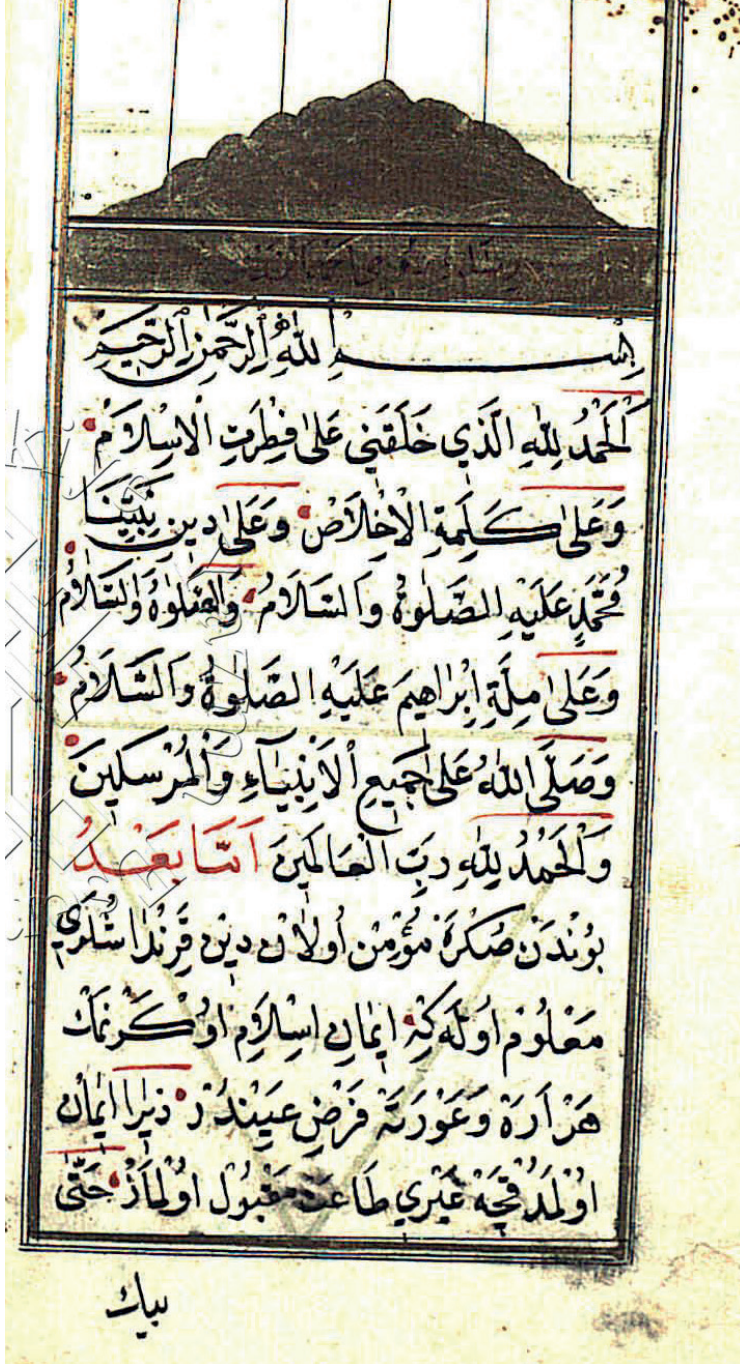 بِسْمِ اللهِ الرَّحْمٰنِ الرَّحِيمِ
اَلْحَمْدُ لِلّٰهِ الَّذِي خَلَقَنِي عَلٰى فِطْرَتِ الْاِسْلَامِ
وَعَلٰى كَلِمَةِ الْاِخْلَاصِ وَعَلٰى دِينِ نَبِيِّنَا
مُحَمَّدٍ عَلَيْهِ الصَّلٰوةُ وَالسَّلَامُ وَالصَّلٰوةُ وَالسَّلَامُ
وَعَلٰى مِلَّةِ اِبْرَاهِيمَ عَلَيْهِ الصَّلٰوةُ وَالسَّلَامُ
وَصَلَّى اللهُ عَلٰى جَمِيعِ الْاَنْبِيَآءِ وَالْمُرْسَلِينَ
وَالْحَمْدُ لِلّٰهِ رَبِّ الْعَالَمِينَ اَمَّا بَعْدُ
بُونْدَنْ صُكْرَهَ مُؤْمِنْ اُولَانْ دِينْ قَرِنْدَاشْلَرِي
مَعْلُومْ اُولَه كِه اِيمَانِ اِسْلَامِ اُوكْرَنْمَكْ
هَرْ اَرَهْ وَعَوْرَتَه فَرْضِ عَيِنْدُرْ زِيرَا اِيمَانْ
اُولْمَدُقْچَه غَيْرِي طَاعَت مَقْبُولْ اُولْمَازْ حَتّٰى
بيك